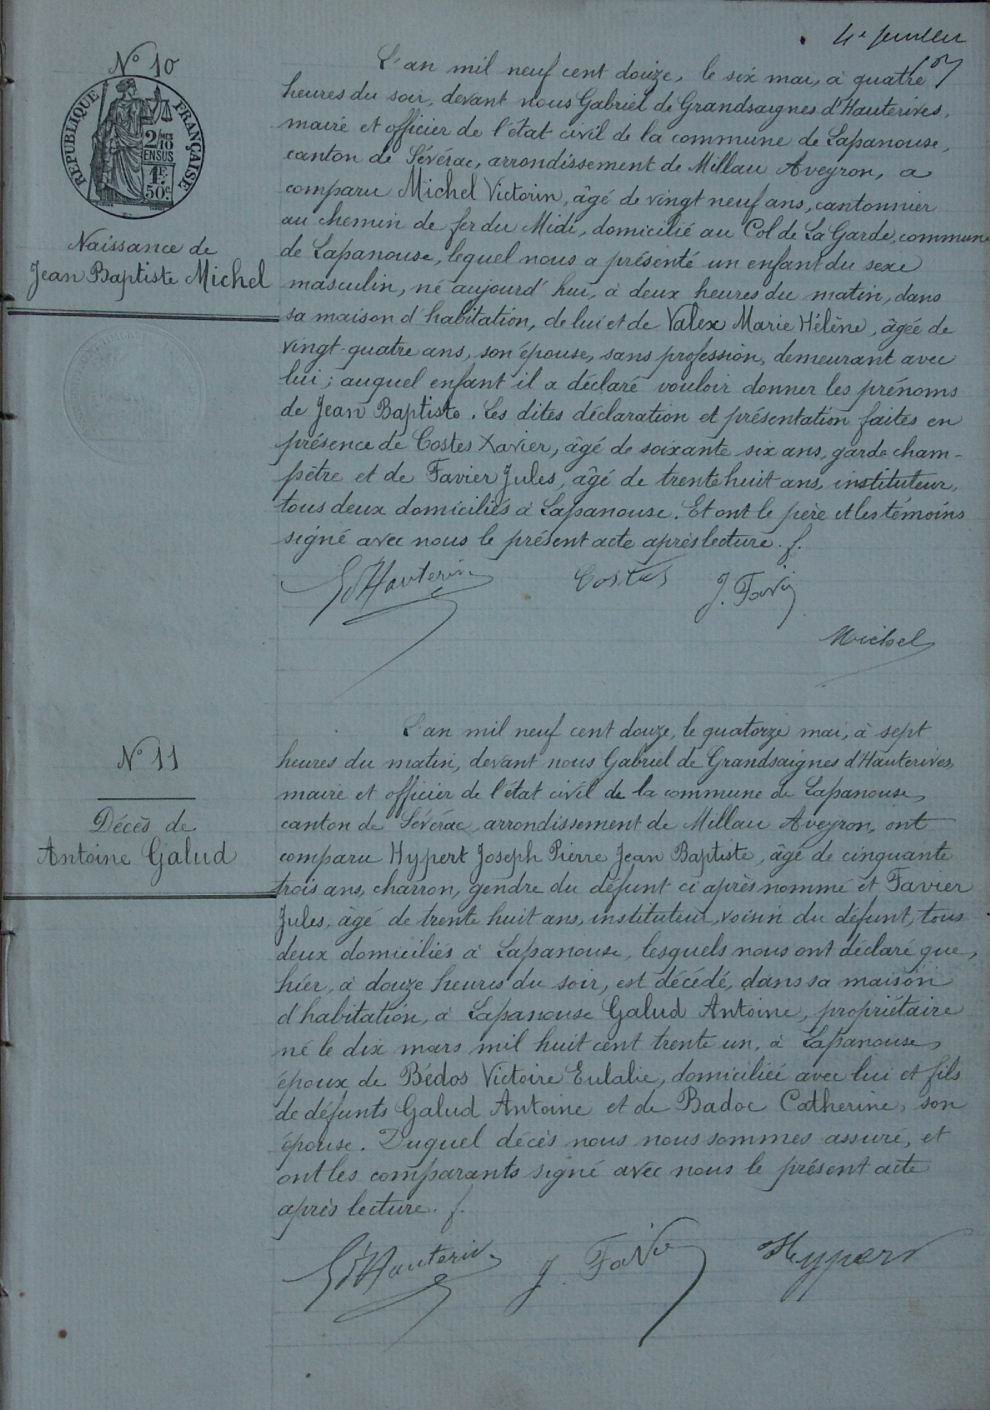 4e feuillet
N° 10
RÉPUBLIQUE FRANÇAISE
2/10 EN SUS
1F 50c
Naissance de
Jean Baptiste Michel
L'an mil neuf cent douze, le six mai, à quatre
heures du soir, devant nous Gabriel de Grandsaignes d'Hauterives,
maire et officier de l'état civil de la commune de Lapanouse,
canton de Sévérac, arrondissement de Millau Aveyron, a
comparu Michel Victorin, âgé de vingt neuf ans, cantonnier
au chemin de fer du Midi, domicilié au Col de La Garde, commune
de Lapanouse, lequel nous a présenté un enfant du sexe
masculin, né aujourd'hui, à deux heures du matin, dans
sa maison d'habitation, de lui et de Valex Marie Hélène, âgée de
vingt-quatre ans, son épouse, sans profession, demeurant avec
lui ; auquel enfant il a déclaré vouloir donner les prénoms
de Jean Baptiste. Les dites déclaration et présentation faites en
présence de Costes Xavier, âgé de soixante six ans, garde cham-
pêtre et de Favier Jules, âgé de trente huit ans, instituteur,
tous deux domiciliés à Lapanouse. Et ont le père et les témoins
signé avec nous le présent acte après lecture.
G d'Hauterives Costes J. Favier
Michel
N° 11
Décès de
Antoine Galud
L'an mil neuf cent douze, le quatorze mai, à sept
heures du matin, devant nous Gabriel de Grandsaignes d'Hauterives,
maire et officier de l'état civil de la commune de Lapanouse,
canton de Sévérac, arrondissement de Millau Aveyron, ont
comparu Hypert Joseph Pierre Jean Baptiste, âgé de cinquante
trois ans, charron, gendre du défunt ci après nommé et Favier
Jules, âgé de trente huit ans, instituteur, voisin du défunt, tous
deux domiciliés à Lapanouse, lesquels nous ont déclaré que,
hier, à douze heures du soir, est décédé, dans sa maison
d'habitation, à Lapanouse Galud Antoine, propriétaire
né le dix mars mil huit cent trente un, à Lapanouse,
époux de Bédos Victoire Eulalie, domiciliée avec lui et fils
de défunts Galud Antoine et de Badoc Catherine, son
épouse. Duquel décès nous nous sommes assuré, et
ont les comparants signé avec nous le présent acte
après lecture.
G d'Hauterives J. Favier Hypert